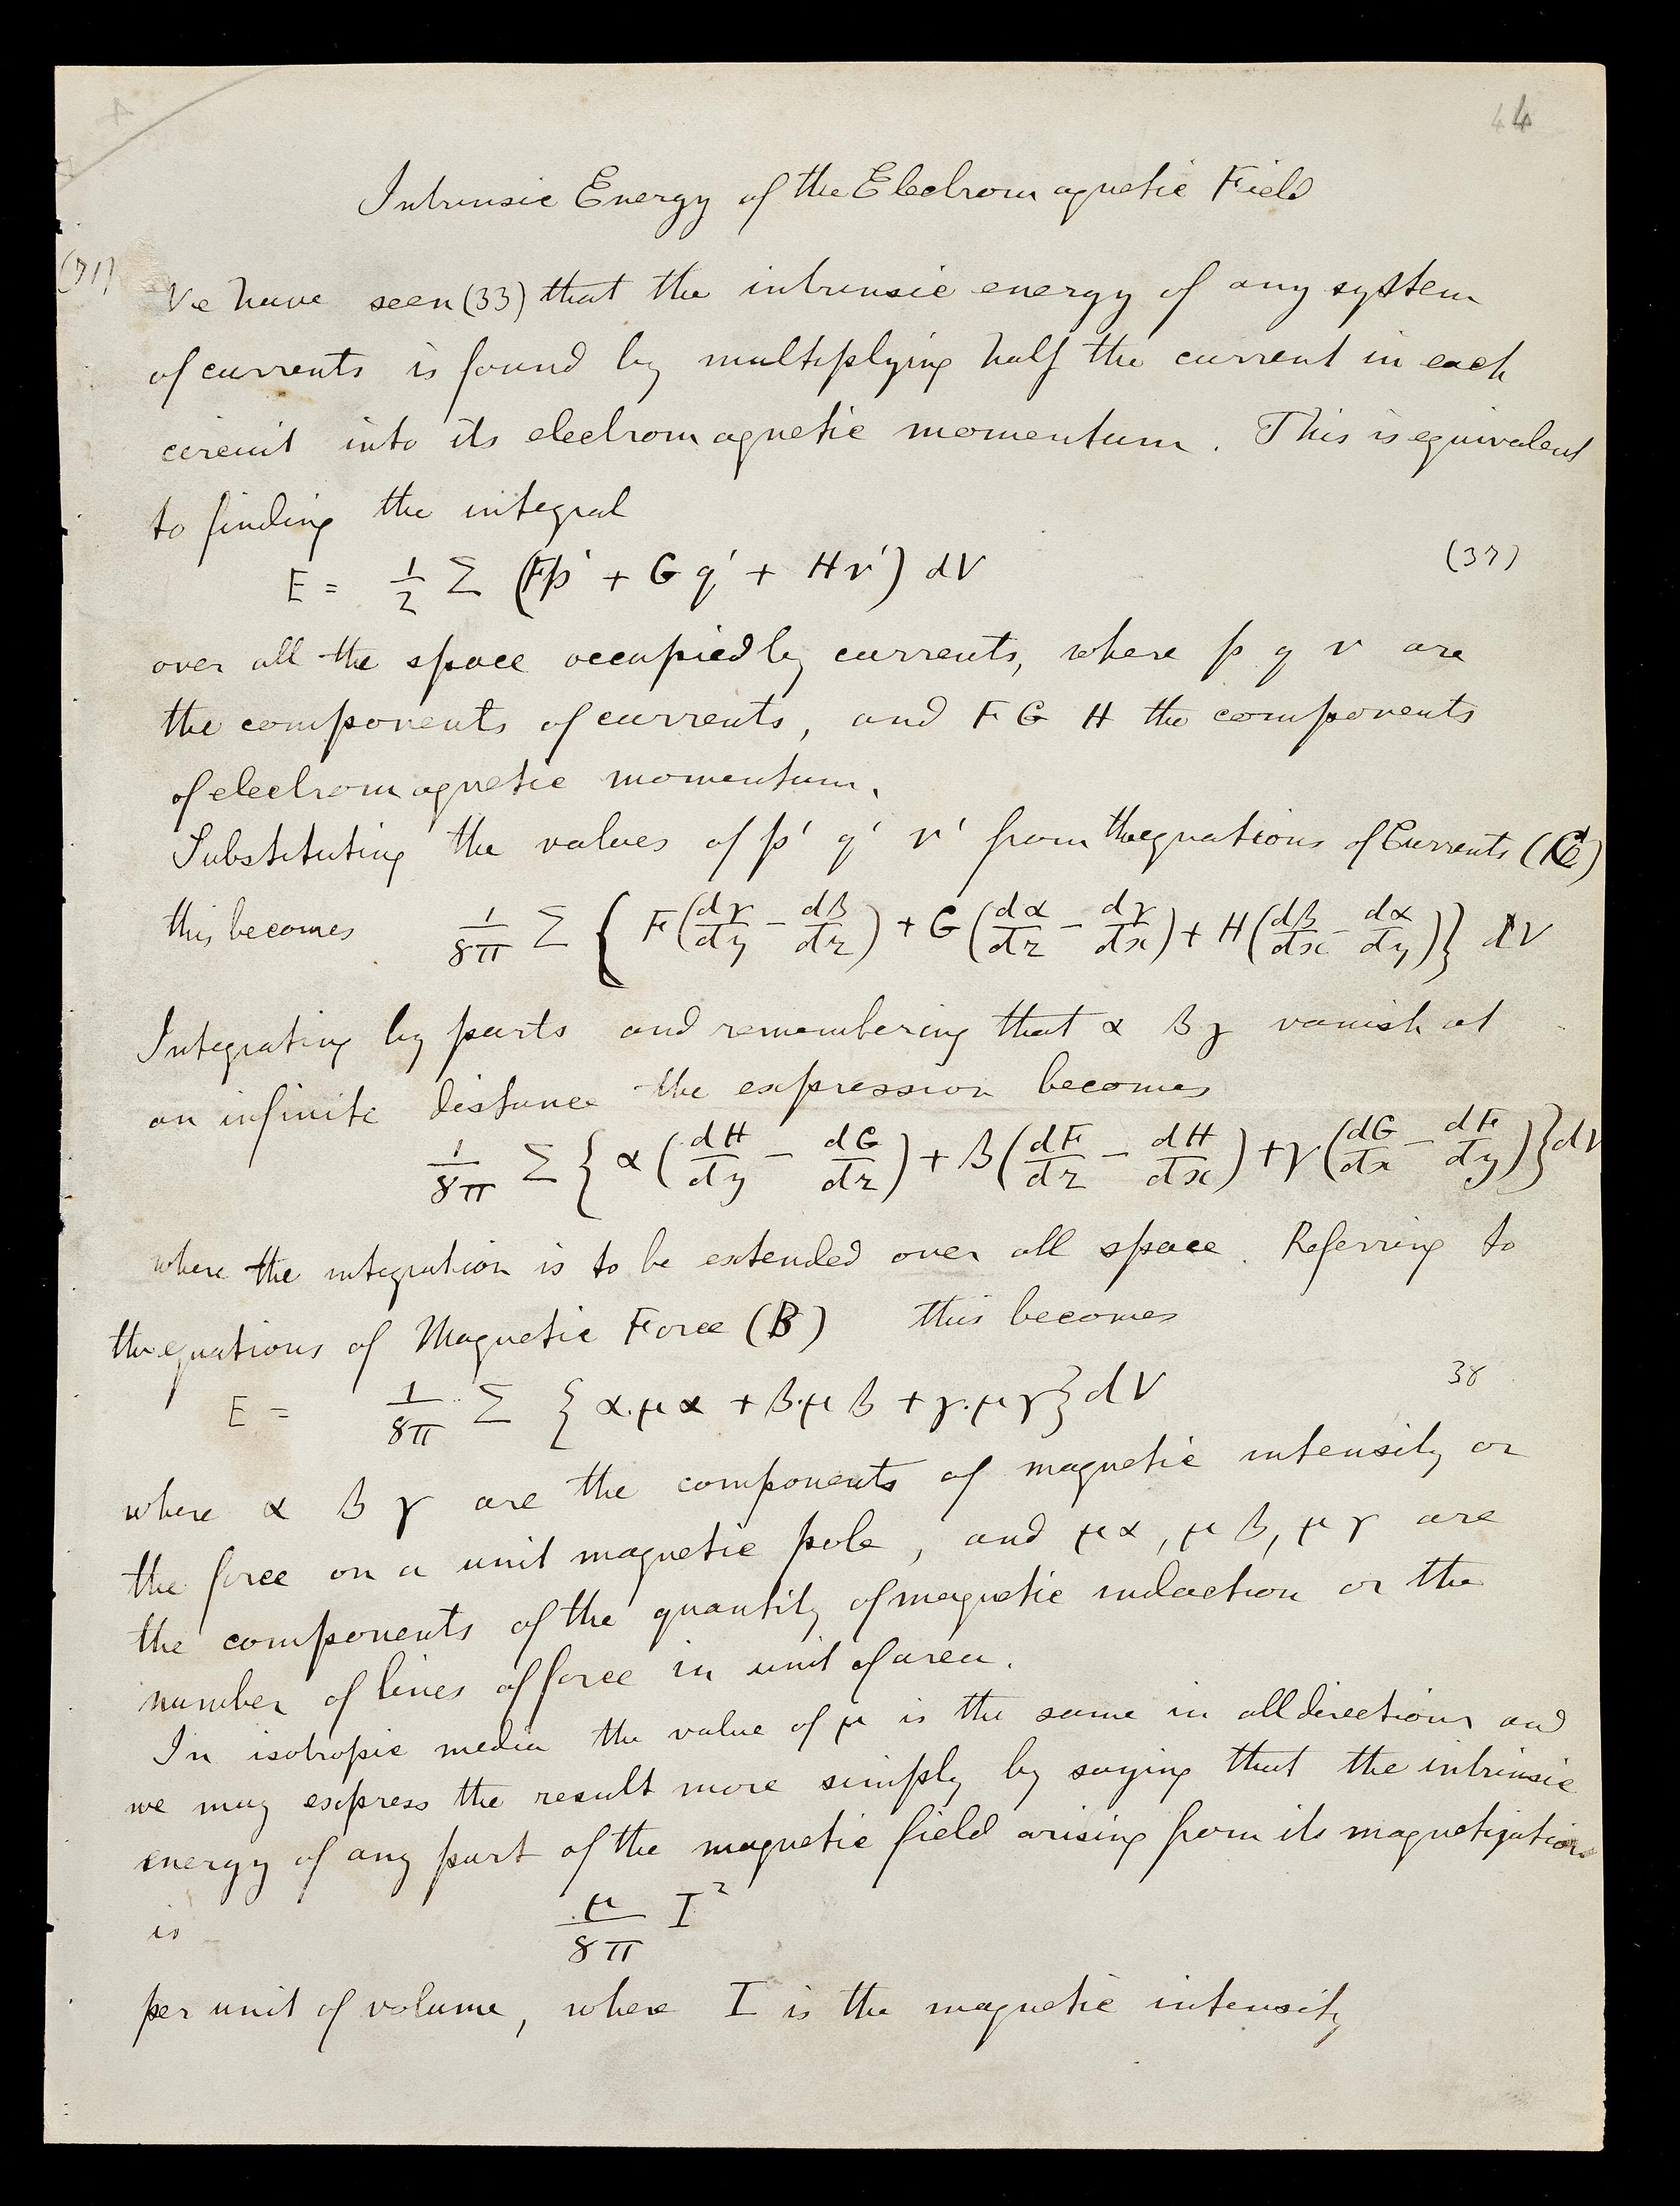 44
Intrinsic Energy of the Electromagnetic Field
(71)
We have seen (33) that the intrinsic energy of any system
of currents is found by multiplying half the current in each
circuit into its electromagnetic momentum. This is equivalent
to finding the integral
E = 1/2 Σ (Fp' + Gq' + Hr') dV (37)
over all the space occupied by currents, where p q r are
the components of currents, and F G H the components
of electromagnetic momentum.
Substituting the values of p' q' r' from the equations of Currents (C)
this becomes 1/8π Σ { F(dγ/dy − dβ/dz) + G(dα/dz − dγ/dx) + H(dβ/dx − dα/dy)} dV
Integrating by parts and remembering that α β γ vanish at
an infinite distance the expression becomes
1/8π Σ { α(dH/dy − dG/dz) + β(dF/dz − dH/dx) + γ(dG/dx − dF/dy)} dV
where the integration is to be extended over all space. Referring to
the equations of Magnetic Force (B) this becomes
E = 1/8π Σ {α.μα + β.μβ + γ.μγ} dV 38
where α β γ are the components of magnetic intensity or
the force on a unit magnetic pole, and μα, μβ, μγ are
the components of the quantity of magnetic induction or the
number of lines of force in unit of area.
In isotropic media the value of μ is the same in all directions and
we may express the result more simply by saying that the intrinsic
energy of any part of the magnetic field arising from its magnetization
is μ/8π I²
per unit of volume, where I is the magnetic intensity